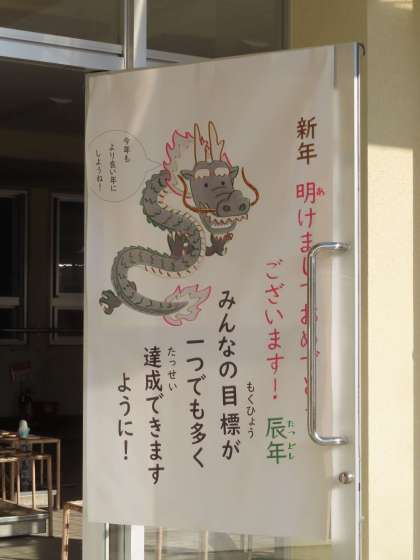 新年
明けましておめでと
ございます！
辰年
たつどし
みんなの目標が
もくひょう
一つでも多く
達成できます
たっせい
ように！
今年も
より良い年に
しようね！